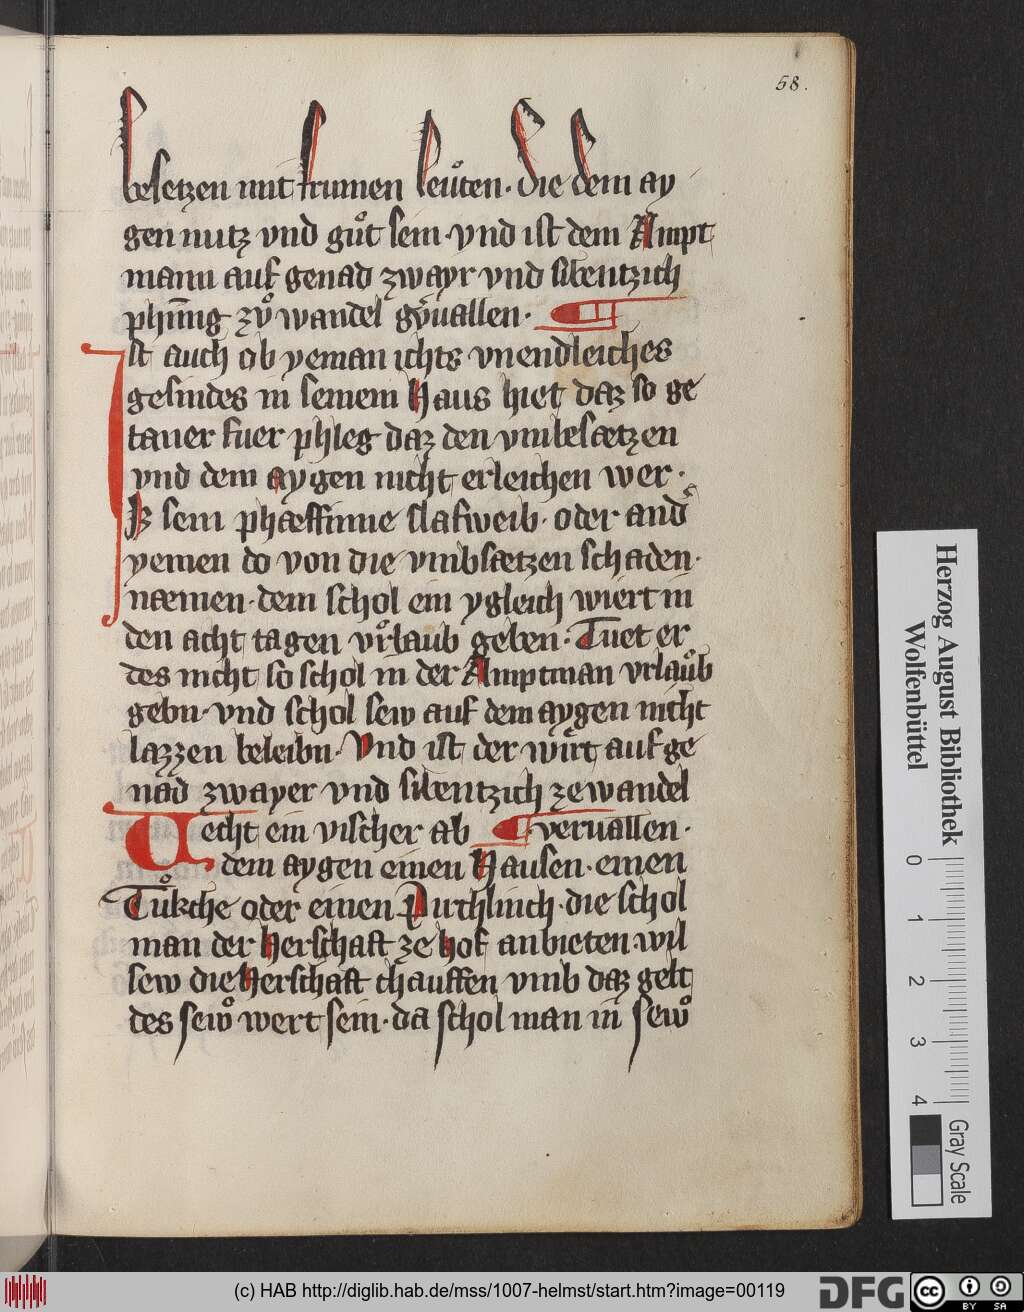 58.
besetzen mit frumen leuͦten · die dem ay
gen nutz vnd guͦt sein · vnd ist dem Ampt
mann auf genad zwayr vnd sibentzich
phūnig zuͦ wandel gevallen · ¶
Ist auch ob yeman ichts vnendleiches
gesindes in seinem Haus hiet daz so ge
tauer fuer phleg daz den vmbesætzen
vnd dem aygen nicht erleichen wer ·
Es sein phæffinne slafweib · oder and͛
yemen do von die vmbsætzen schaden ·
næmen · dem schol ein ygleich wiert in
den acht tagen vrͦlaub geben · Tuet er
des nicht so schol in der Amptman vrlauͦb
gebn · vnd schol sew auf dem aygen nicht
lazzen beleibn · Vnd ist der wirt auf ge
nad zwayer vnd sibentzich ze wandel
Vecht ein vischer ab ¶ · veruallen ·
dem aygen einen Hausen · einen
Tuͦkche oder einen Purchlinch · die schol
man der Herschaft ze hof anbieten wil
sew die Herschaft chauffen vmb daz gelt
des sewͦ wert sein · da schol man in sewͦ
Herzog August Bibliothek
Wolfenbüttel
0 1 2 3 4
Gray Scale
(c) HAB http://diglib.hab.de/mss/1007-helmst/start.htm?image=00119
DFG
cc BY SA